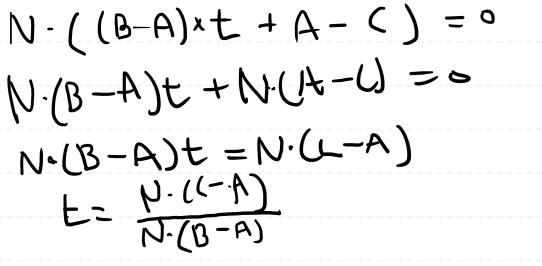 N·((B-A)×t + A - C) = 0
N·(B-A)t + N·(A-C) = 0
N·(B-A)t = N·(C-A)
t = N·(C-A) / N·(B-A)